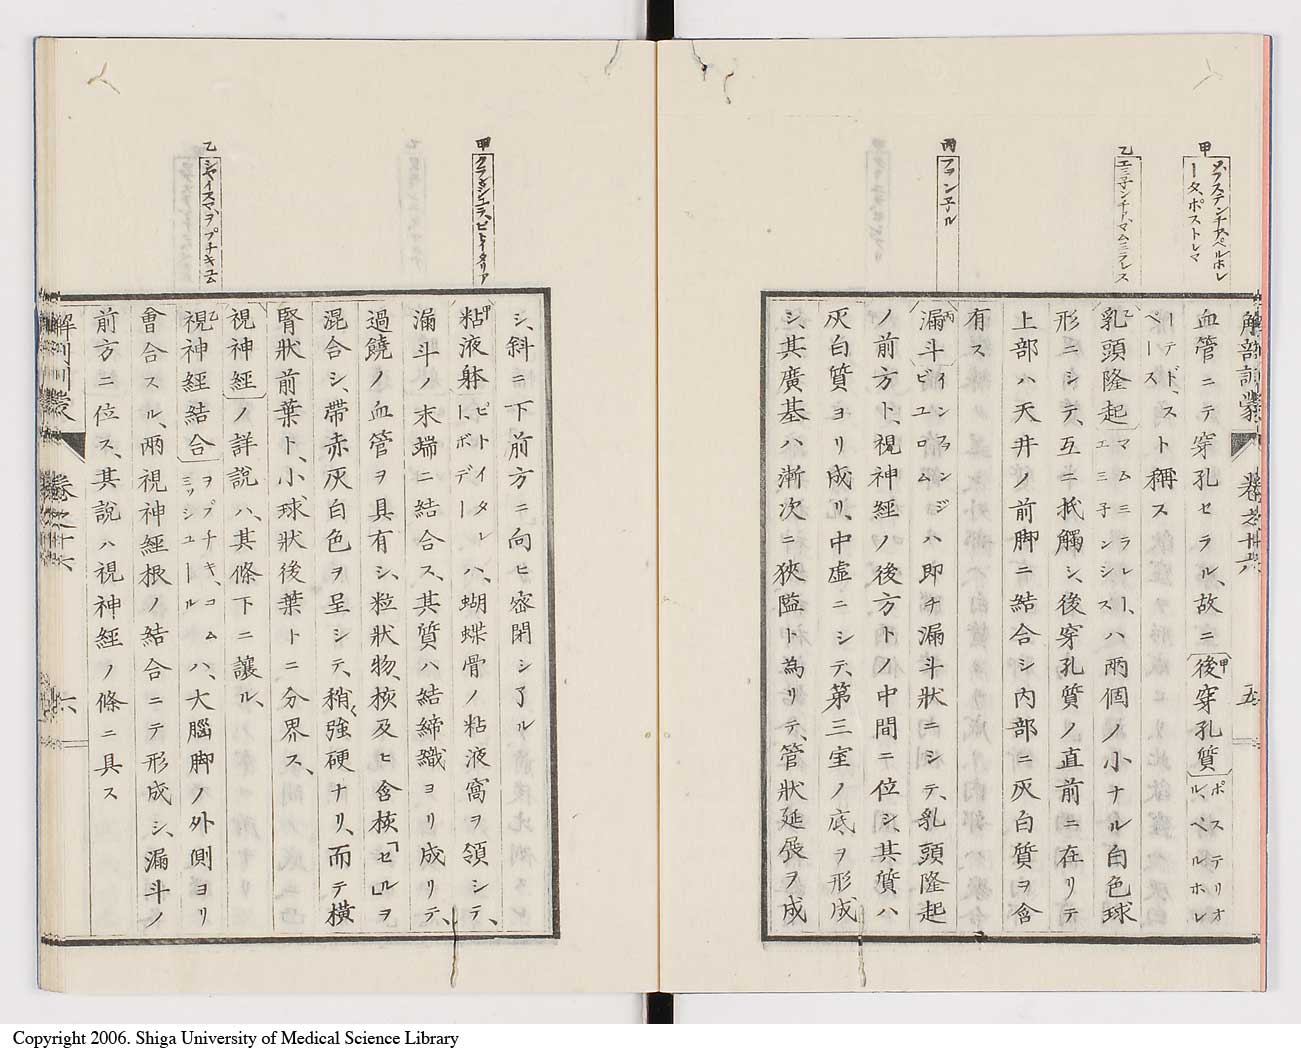 甲
ゾブステンチア、ペルホレ
ータ、ポストレマ
乙
エミ子ンチド、マムミラレス
丙
ファンネル
血管ニテ穿孔セラル、故ニ後穿孔質ポステリオルペルホレ
ーテド、スト稱ス
ペース
乳頭隆起マムミラレー、エミ子ンシスハ兩個ノ小ナル白色球
形ニシテ、互ニ抵觸シ、後穿孔質ノ直前ニ在リテ
上部ハ天井ノ前脚ニ結合シ内部ニ灰白質ヲ含
有ス
漏斗インフンジビユロムハ即チ漏斗狀ニシテ、乳頭隆起
ノ前方ト、視神經ノ後方トノ中間ニ位シ、其質ハ
灰白質ヨリ成リ、中虛ニシテ、第三室ノ底ヲ形成
シ、其廣基ハ漸次ニ狹隘ト為リテ、管狀延展ヲ成
解剖訓蒙 卷之廿六 五
甲
クランジユラ、ピトイタリア
乙
シヤイスマ、ヲプチキユム
シ、斜ニ下前方ニ向ヒ密閉シ了ル
粘液躰ピトイタレ、ボデーハ、蝴蝶骨ノ粘液窩ヲ領シテ、
漏斗ノ末端ニ結合ス、其質ハ結締織ヨリ成リテ、
過饒ノ血管ヲ具有シ、粒狀物、核及ヒ含核「セル」ヲ
混合シ、帶赤灰白色ヲ呈シテ、稍強硬ナリ、而テ橫
腎狀前葉ト、小球狀後葉トニ分界ス、
視神經ノ詳說ハ、其條下ニ讓ル、
視神經結合ヲプチキ、コムミツシユールハ、大腦脚ノ外側ヨリ
會合スル、兩視神經根ノ結合ニテ形成シ、漏斗ノ
前方ニ位ス、其說ハ視神經ノ條ニ具ス
解剖訓蒙 卷之廿六 六
Copyright 2006. Shiga University of Medical Science Library